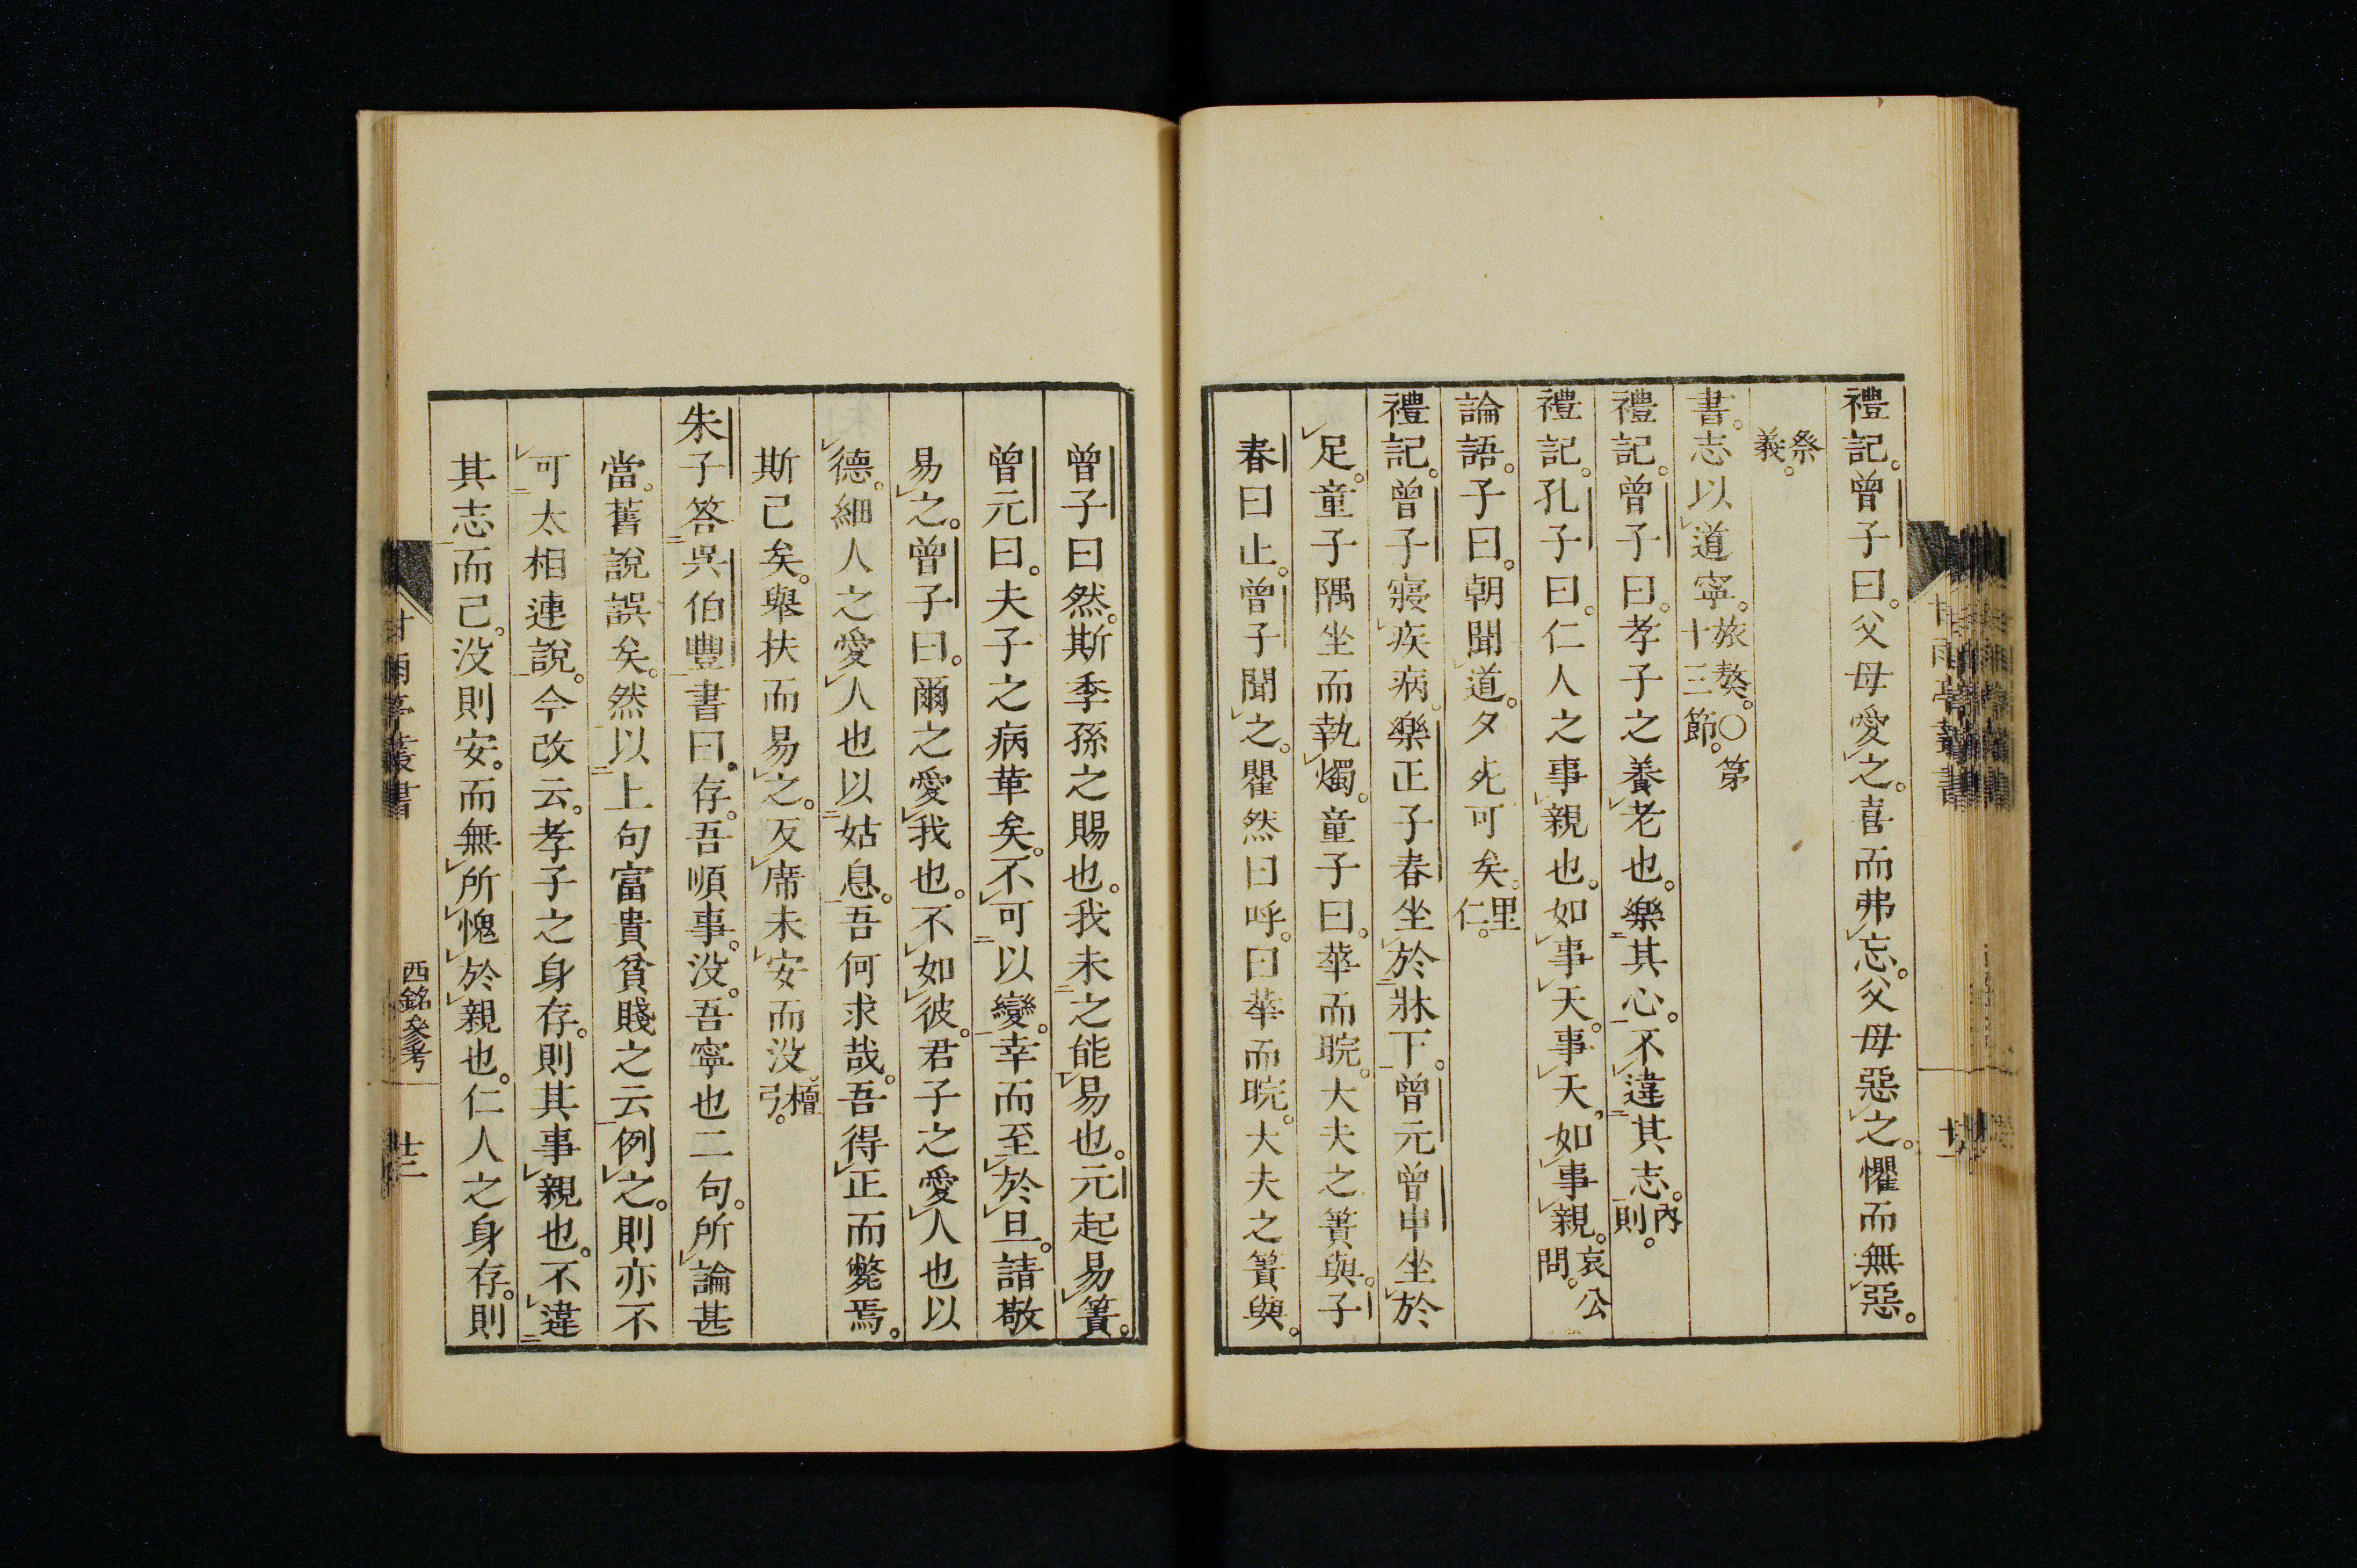 禮記。曾子曰。父母愛之。喜而弗忘。父母惡之。懼而無惡。
祭義。
書。志以道寧。旅獒。〇第十三節。
禮記。曾子曰。孝子之養老也。樂其心。不違其志。內則。
禮記。孔子曰。仁人之事親也。如事天。事天。如事親。哀公問。
論語。子曰。朝聞道。夕死可矣。里仁。
禮記。曾子寢疾病。樂正子春坐於牀下。曾元曾申坐於
足。童子隅坐而執燭。童子曰。華而睆。大夫之簀與。子
春曰止。曾子聞之。瞿然曰呼。曰華而睆。大夫之簀與。
曾子曰然。斯季孫之賜也。我未之能易也。元起易簀。
曾元曰。夫子之病革矣。不可以變。幸而至於旦。請敬
易之。曾子曰。爾之愛我也。不如彼。君子之愛人也以
德。細人之愛人也以姑息。吾何求哉。吾得正而斃焉。
斯已矣。舉扶而易之。反席未安而沒。檀弓。
朱子答吳伯豐書曰。存。吾順事。沒。吾寧也二句。所論甚
當。舊說誤矣。然以上句富貴貧賤之云例之。則亦不
可太相連說。今改云。孝子之身存。則其事親也。不違
其志而已。沒則安。而無所愧於親也。仁人之身存。則
甘雨亭叢書
西銘參考
廿二